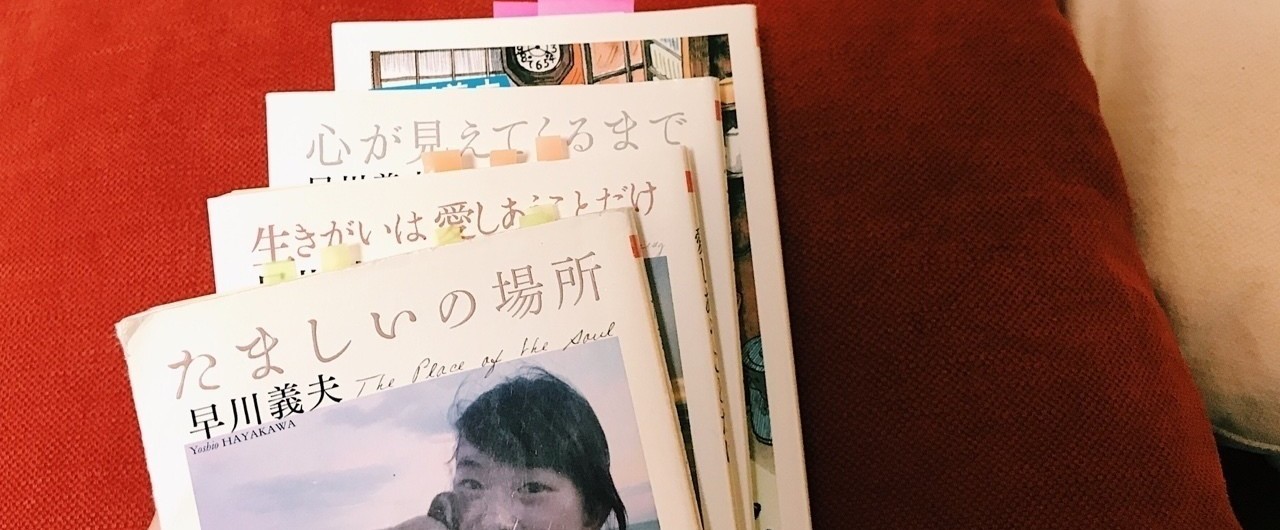 心が見えてくるまで
早川義夫
生きがいは愛しあうことだけ
たましいの場所
The Place of the Soul
早川義夫
Yoshio HAYAKAWA